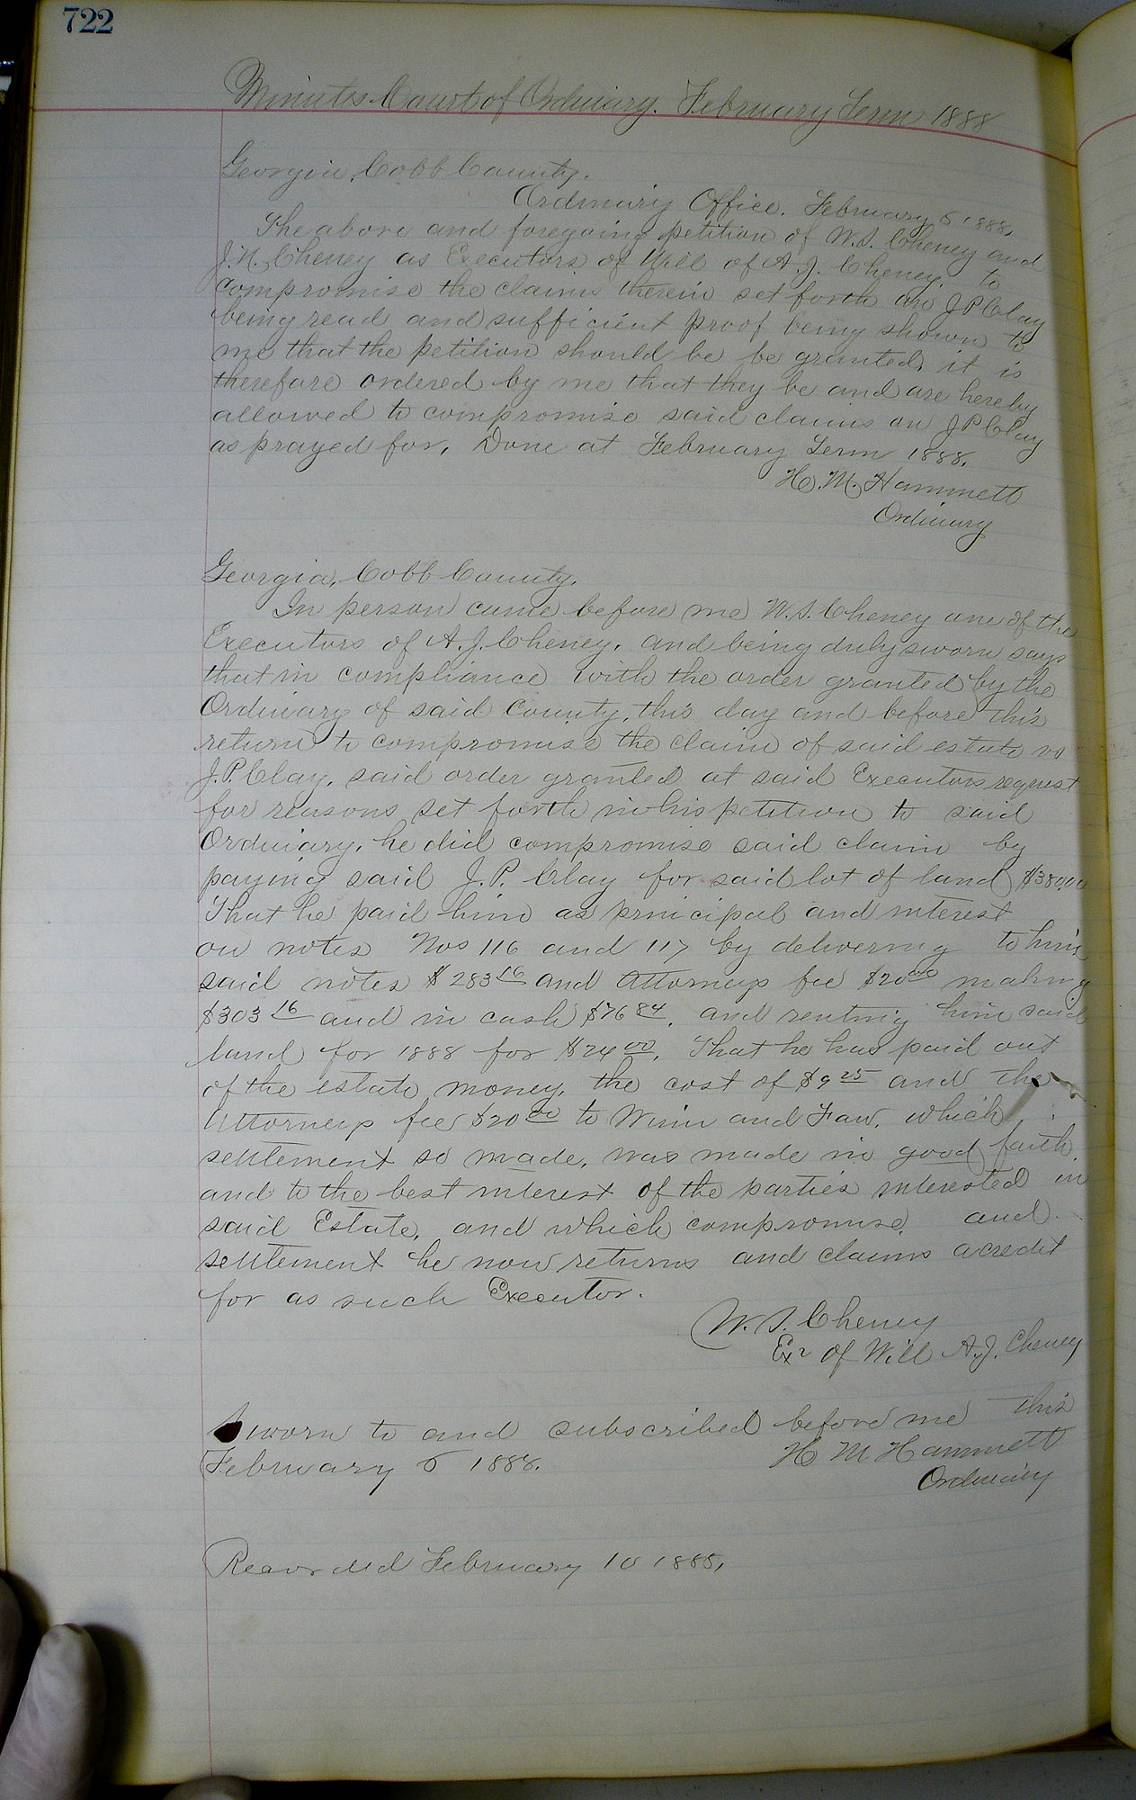 722
Minutes Court of Ordinary. February Term 1888
Georgia, Cobb County.
Ordinary Office. February 6 1888.
The above and foregoing petition of W.S. Cheney and
J.N. Cheney as Executors of Will of A.J. Cheney. to
compromise the claims therein set forth on J P Clay
being read and sufficient proof being shown to
me that the petition should be be granted, it is
therefore ordered by me that they be and are hereby
allowed to compromise said claims on J P Clay
as prayed for. Done at February Term 1888.
H. M. Hammett
Ordinary
Georgia, Cobb County.
In person came before me W.S. Cheney one of the
Executors of A.J. Cheney. and being duly sworn says
that in compliance with the order granted by the
Ordinary of said County, this day and before this
return to compromise the claim of said estate vs
J.P. Clay, said order granted at said Executors request
for reasons set forth in his petition to said
Ordinary, he did compromise said claim by
paying said J.P. Clay for said lot of land $380.00
That he paid him as principal and interest
on notes Nos 116 and 117 by delivering to him
said notes $283 16 and Attorneys fee $20 00 making
$303 16 and in cash $76 84. and renting him said
land for 1888 for $24 00. That he has paid out
of the estate money, the cost of $9 25 and the
Attorneys fee $20 00 to Winn and Faw, which
settlement so made, was made in good faith,
and to the best interest of the parties interested in
said Estate, and which compromise, and
settlement he now returns and claims a credit
for as such Executor.
W. S. Cheney
Exr of Will A.J. Cheney
Sworn to and subscribed before me this
February 6 1888.
H M Hammett
Ordinary
Recorded February 10 1888,